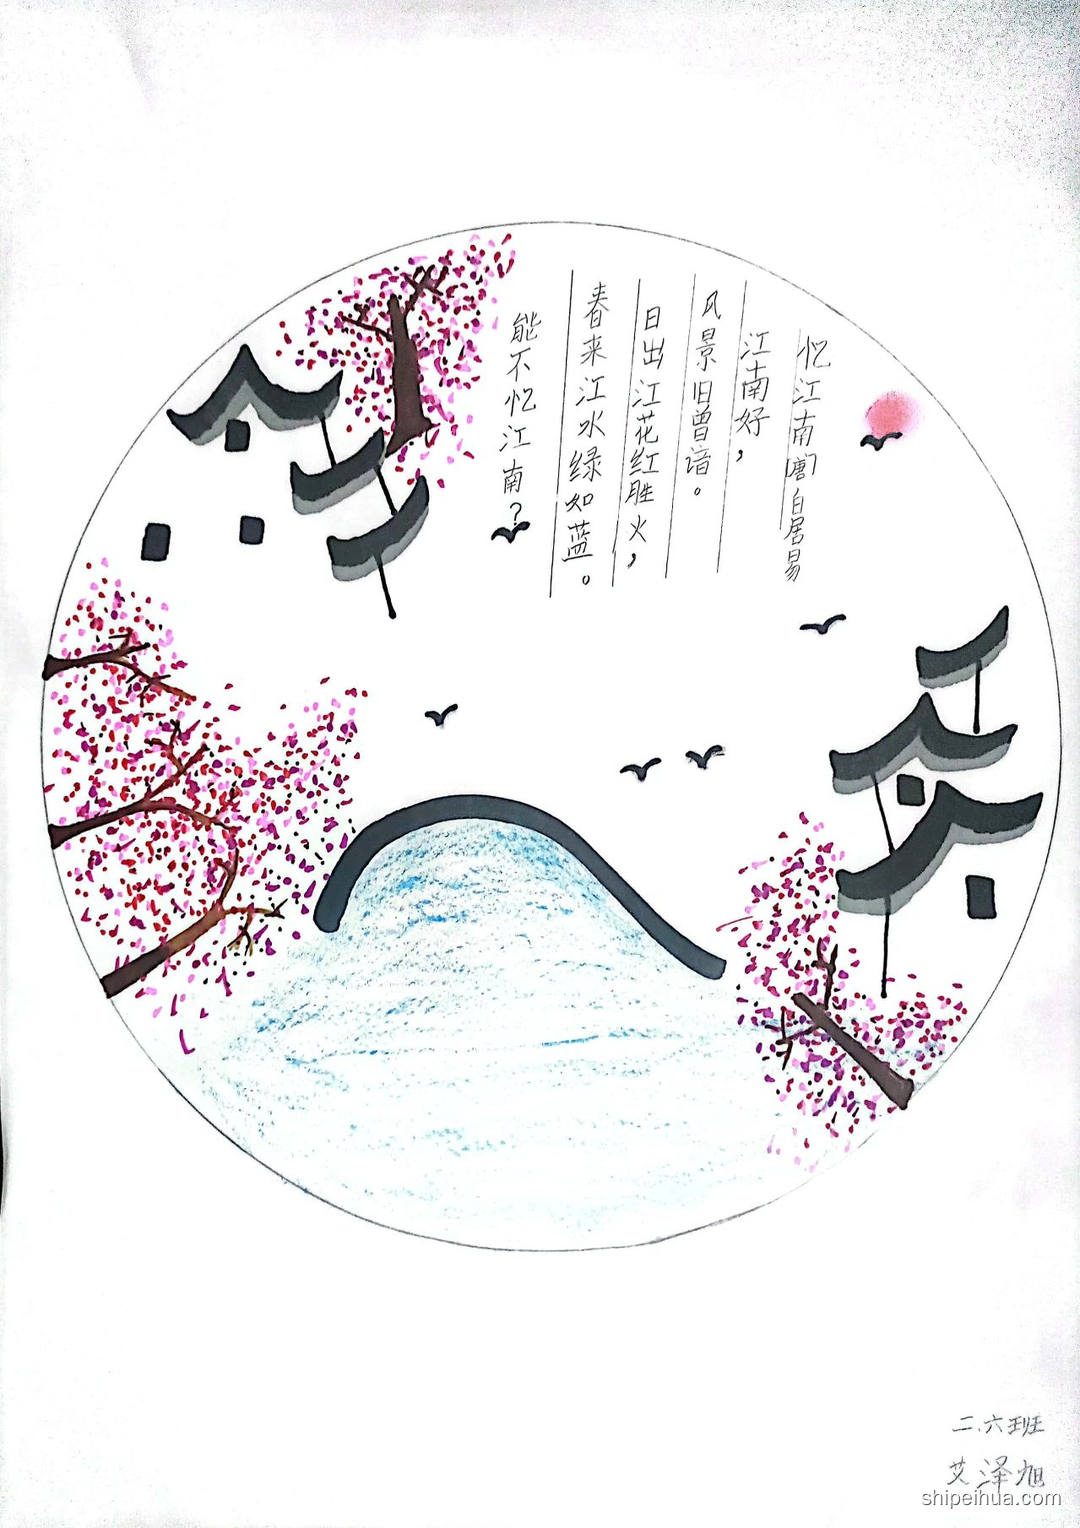 忆江南 唐 白居易
江南好，
风景旧曾谙。
日出江花红胜火，
春来江水绿如蓝。
能不忆江南？
二.六班
艾泽旭
shipeihua.com